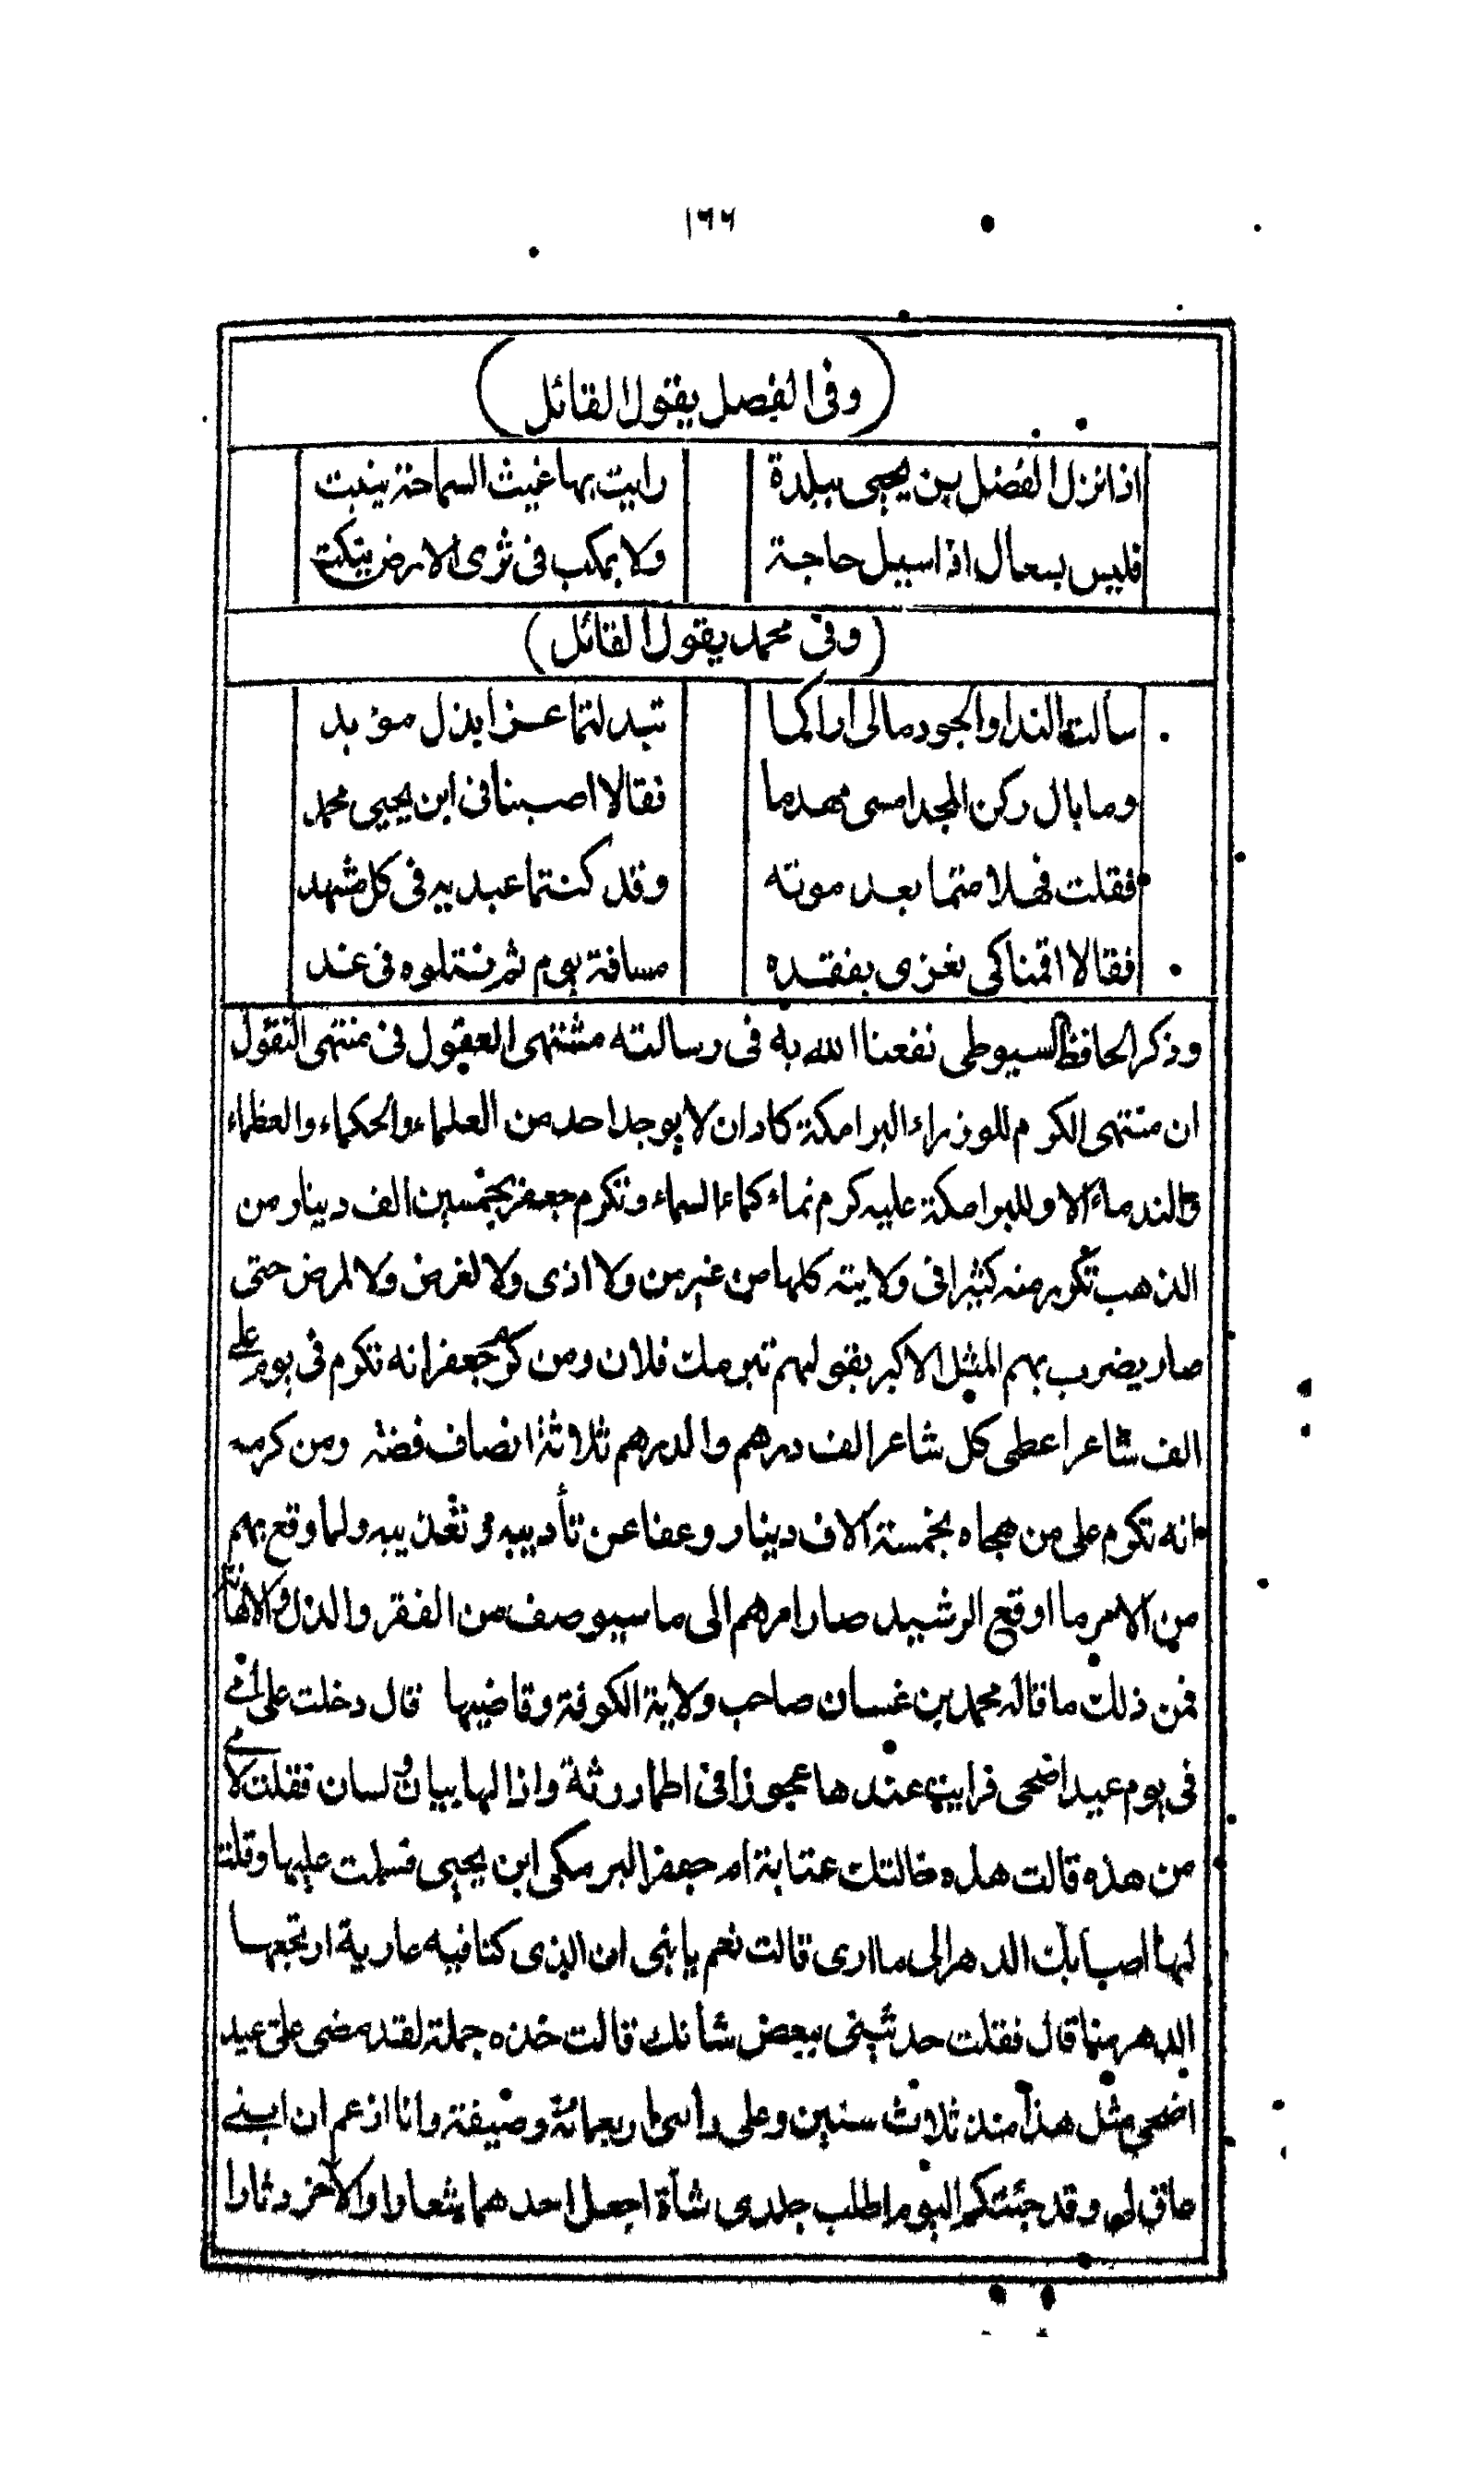 ١٦٦
(وفى الفصل يقول القائل)
اذا نزل الفضل بن يحيى ببلدة رايت بها غيث السماحة ينبت
فليس بسعال اذا سيل حاجة ولا بمكب فى ثرى الارض ينكت
(وفى محمد يقول القائل)
سألت الندا والجود مالى اراكما تبدلتما عزا بذل مؤبد
وما بال ركن المجد امسى مهدما فقالا اصبنا فى ابن يحيى محمد
فقلت فهلا متما بعد موته وقد كنتما عبديه فى كل مشهد
فقالا اقمنا كى نعزى بفقده مسافة يوم ثم نتلوه فى غد
وذكر الحافظ السيوطى نفعنا الله به فى رسالته مشتهى العقول فى منتهى النقول
ان منتهى الكرم للوزراء البرامكة كاد ان لا يوجد احد من العلماء والحكماء والعظماء
والندماء الا وللبرامكة عليه كرم نماء كماء السماء وتكرم جعفر بخمسين الف دينار من
الذهب تكرر منه كثيرا فى ولايته كلها من غير من ولا اذى ولا لغرض ولا لمرض حتى
صار يضرب بهم المثل الاكبر بقولهم تبرمك فلان ومن كرم جعفر انه تكرم فى يوم على
الف شاعر اعطى كل شاعر الف درهم والدرهم ثلاثة انصاف فضة ومن كرمه
انه تكرم على من هجاه بخمسة الاف دينار وعفا عن تأديبه وتعذيبه ولما وقع بهم
من الامر ما اوقع الرشيد صار امرهم الى ما سيوصف من الفقر والذل والاهانة
فمن ذلك ما قاله محمد بن غسان صاحب ولاية الكوفة وقاضيها قال دخلت على امى
فى يوم عيد اضحى فرايت عندها عجوزا فى اطمار رثة واذا لها بيان ولسان فقلت لامى
من هذه قالت هذه خالتك عتابة ام جعفر البرمكى ابن يحيى فسلمت عليها وقلت
لها اصبابك الدهر الى ما ارى قالت نعم يا بنى ان الذى كنا فيه عارية ارتجعها
الدهر منا قال فقلت حدثينى ببعض شأنك قالت خذه جملة لقد مضى على عيد
اضحى مثل هذا منذ ثلاث سنين وعلى راسى اربعمائة وصيفة وانا ازعم ان ابنى
عاق لى وقد جئتكم اليوم اطلب جلدى شأة اجعل احدهما شعارا والآخر دثارا